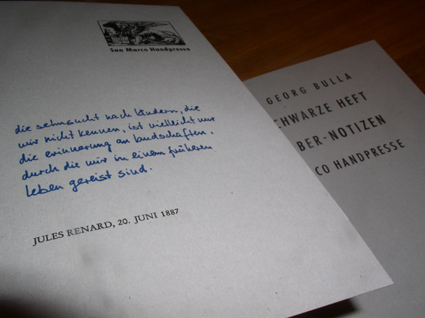 San Marco Handpresse
die sehnsucht nach ländern, die
wir nicht kennen, ist vielleicht nur
die erinnerung an landschaften,
durch die wir in einem früheren
leben gereist sind.
JULES RENARD, 20. JUNI 1887
GEORG BULLA
CHWARZE HEFT
BER-NOTIZEN
CO HANDPRESSE